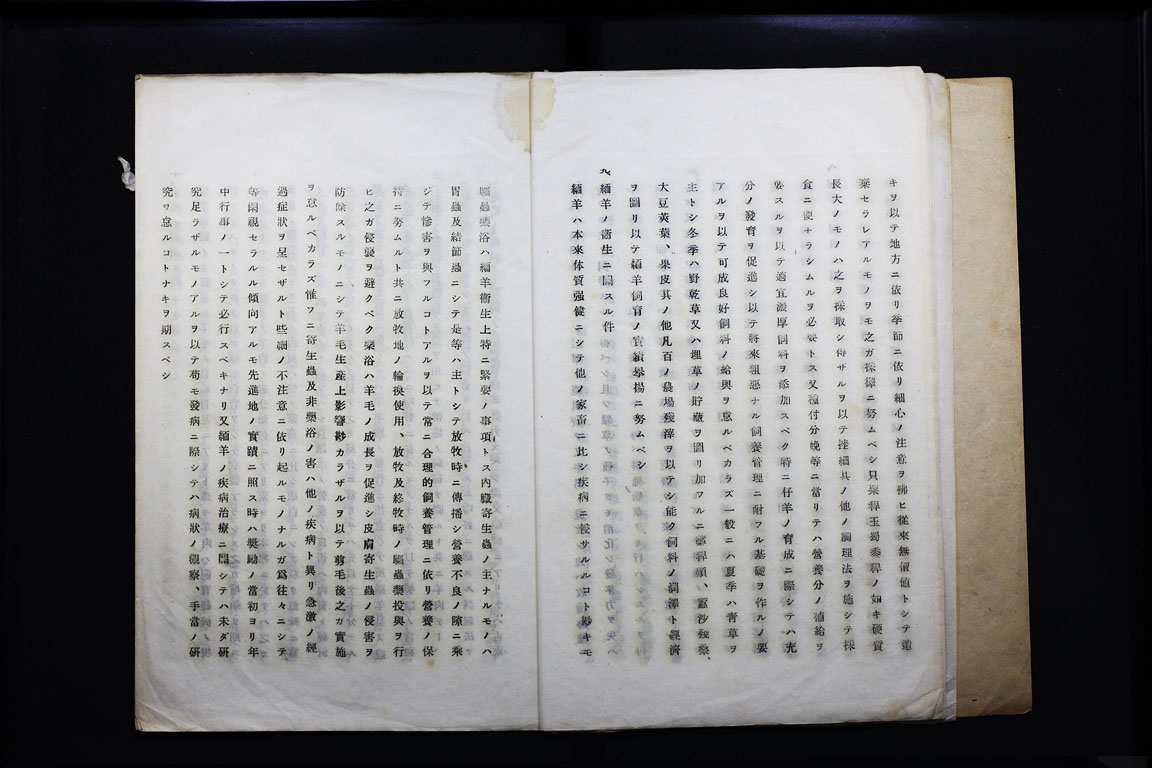 キヲ以テ地方ニ依リ季節ニ依リ細心ノ注意ヲ拂ヒ從來無價値トシテ遺
棄セラレアルモノヲモ之ガ採擇ニ努ムベシ只粟稈玉蜀黍稈ノ如キ硬質
長大ノモノハ之ヲ採取シ得ザルヲ以テ挫細其ノ他ノ調理法ヲ施シテ採
食ニ便ナラシムルヲ必要トス又種付分娩等ニ當リテハ營養分ノ補給ヲ
要スルヲ以テ適宜濃厚飼料ヲ添加スベク特ニ仔羊ノ育成ニ際シテハ充
分ノ發育ヲ促進シ以テ將來粗惡ナル飼養管理ニ耐フル基礎ヲ作ルノ要
アルヲ以テ可成良好飼料ノ給與ヲ怠ルベカラズ一般ニハ夏季ハ靑草ヲ
主トシ冬季ハ野乾草又ハ埋草ノ貯藏ヲ圖リ加フルニ稈類、蠶沙殘桑、
大豆莢葉、果皮其ノ他凡百ノ農場殘滓ヲ以テシ能ク飼料ノ潤澤ト經濟
ヲ圖リ以テ緬羊飼育ノ實績擧揚ニ努ムベシ
九、緬羊ノ衞生ニ關スル件
緬羊ハ本來体質强健ニシテ他ノ家畜ニ比シ疾病ニ侵サルルコト尠キモ
驅蟲藥浴ハ緬羊衞生上特ニ緊要ノ事項トス内臟寄生蟲ノ主ナルモノハ
胃蟲及結節蟲ニシテ是等ハ主トシテ放牧時ニ傳播シ營養不良ノ隙ニ乘
ジテ慘害ヲ與フルコトアルヲ以テ常ニ合理的飼養管理ニ依リ營養ノ保
持ニ努ムルト共ニ放牧地ノ輪換使用、放牧及終牧時ノ驅蟲藥投與ヲ行
ヒ之ガ侵襲ヲ避クベク藥浴ハ羊毛ノ成長ヲ促進シ皮膚寄生蟲ノ侵害ヲ
防除スルモノニシテ羊毛生産上影響尠カラザルヲ以テ剪毛後之ガ實施
ヲ怠ルベカラズ惟フニ寄生蟲及非藥浴ノ害ハ他ノ疾病ト異リ急激ノ經
過症狀ヲ呈セザルト些細ノ不注意ニ依リ起ルモノナルガ爲往々ニシテ
等閑視セラルル傾向アルモ先進地ノ實蹟ニ照ス時ハ奬勵ノ當初ヨリ年
中行事ノ一トシテ必行スベキナリ又緬羊ノ疾病治療ニ關シテハ未ダ研
究足ラザルモノアルヲ以テ苟モ發病ニ際シテハ病狀ノ觀察、手當ノ研
究ヲ怠ルコトナキヲ期スベシ